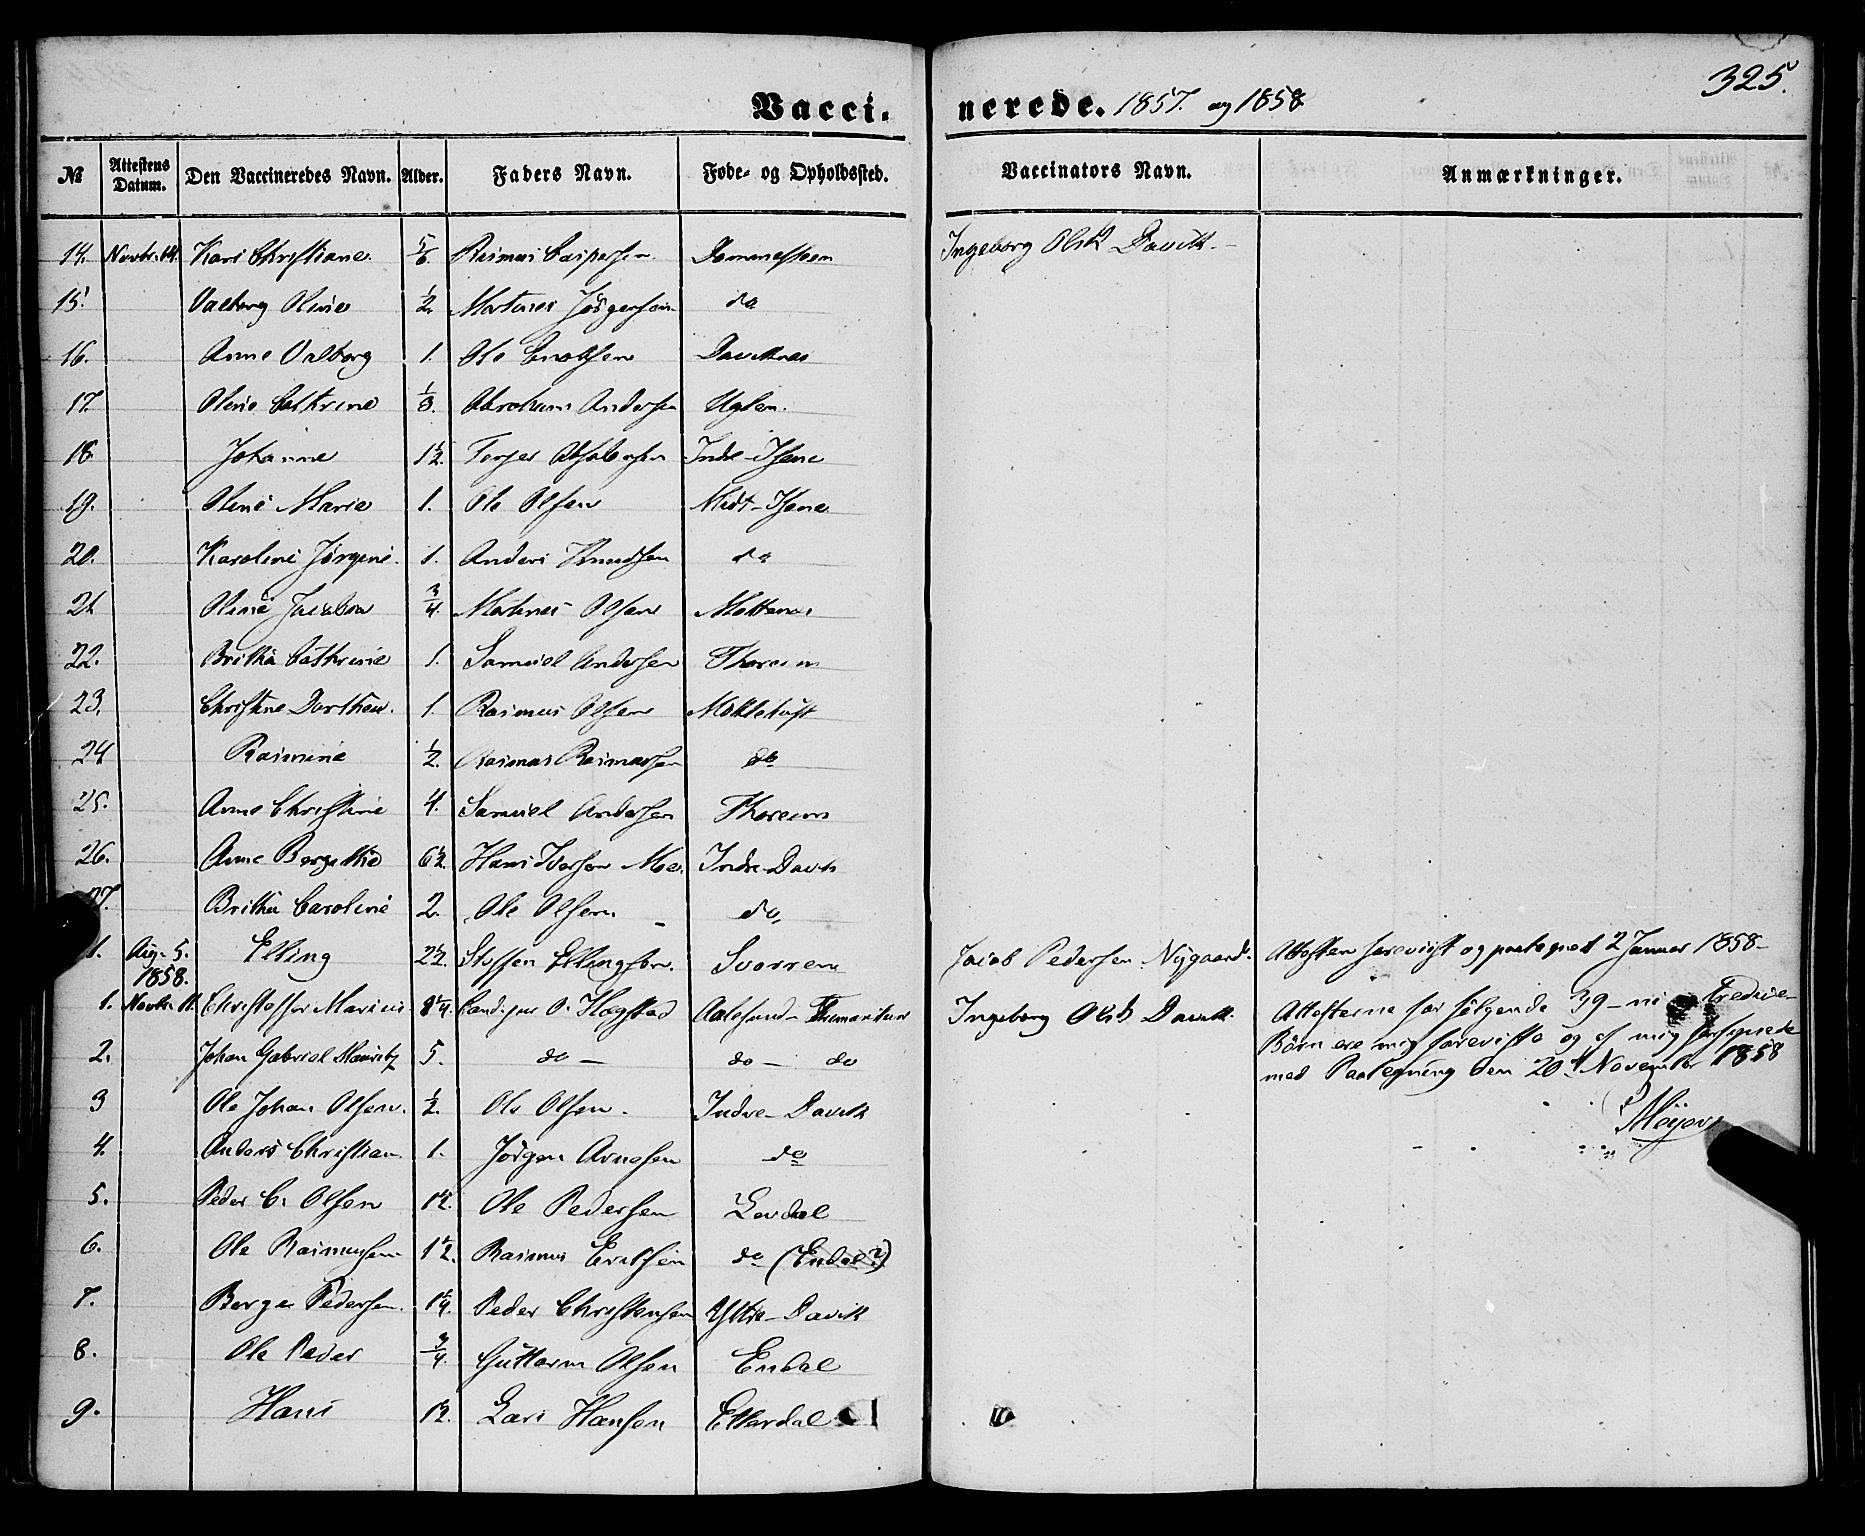 325.
Vaccinerede. 1857. og 1858
№ Attestens Datum. Den Vaccineredes Navn. Alder. Faders Navn. Føde- og Opholdssted. Vaccinators Navn. Anmærkninger.
14. Novbr. 14. Kari Christiane 5/6. Rasmus Caspersen Dommesteen Ingeborg Olsd. Davik.
15. Valborg Oline 1/2. Martinus Jørgensen do
16. Anne Valborg 1. Ole Daviknæs
17. Oline Cathrine 1/3. Abraham Andersen
18 Johanne 1 1/2. Terjer Absalonsen Indre-Isene
19. Oline Marie 1. Ole Olsen Midt-Isene
20. Karoline Jørgine 1. Anders Knudsen do
21 Oline Jacobea 3/4. Martinus Olsen
22. Brithe Cathrine 1. Samuel Andersen
23. Christine Dorthea. 1. Rasmus Olsen
24 Rasmine 1/2. Rasmus Rasmussen do
25. Anne Christine 4. Samuel Andersen
26. Anne Bergethe 6 1/2. Hans Iversen Moe. Indre-Davik
27. Brithe Caroline 2. Ole Olsen do
1. Aug. 5. 1858. Elling 2 1/2. Steffen Ellingsen. Svorren Jacob Pedersen Nygaard. Attesten forevist og paategnet 2 Januar 1858
1. Novbr. 11. Christoffer Marius 8 1/4. Cand. O. Høgstad Aalesund Ingeborg Olsd. Davik. Attesterne for følgende 39-ni og Tredive-
2. Johan Gabriel Mauritz 5. do do do Børn ere mig foreviste og af mig forsynede
med Paategning den 20d November 1858
3 Ole Johan Olsen. 1/2. Ole Olsen. Indre-Davik
Meyer
4. Anders Christian 1. Jørgen Arnesen do
5. Peder C. Olsen 1 1/2. Ole Pedersen
6. Ole Rasmussen 1 1/2. Rasmus Eriksen do (Endal?)
7. Berge Pedersen. 1 1/4. Peder Christensen Ytre-Davik
8. Ole Peder 3/4. Guttorm Olsen Endal
9. Hans 1 1/2. Lars Hansen